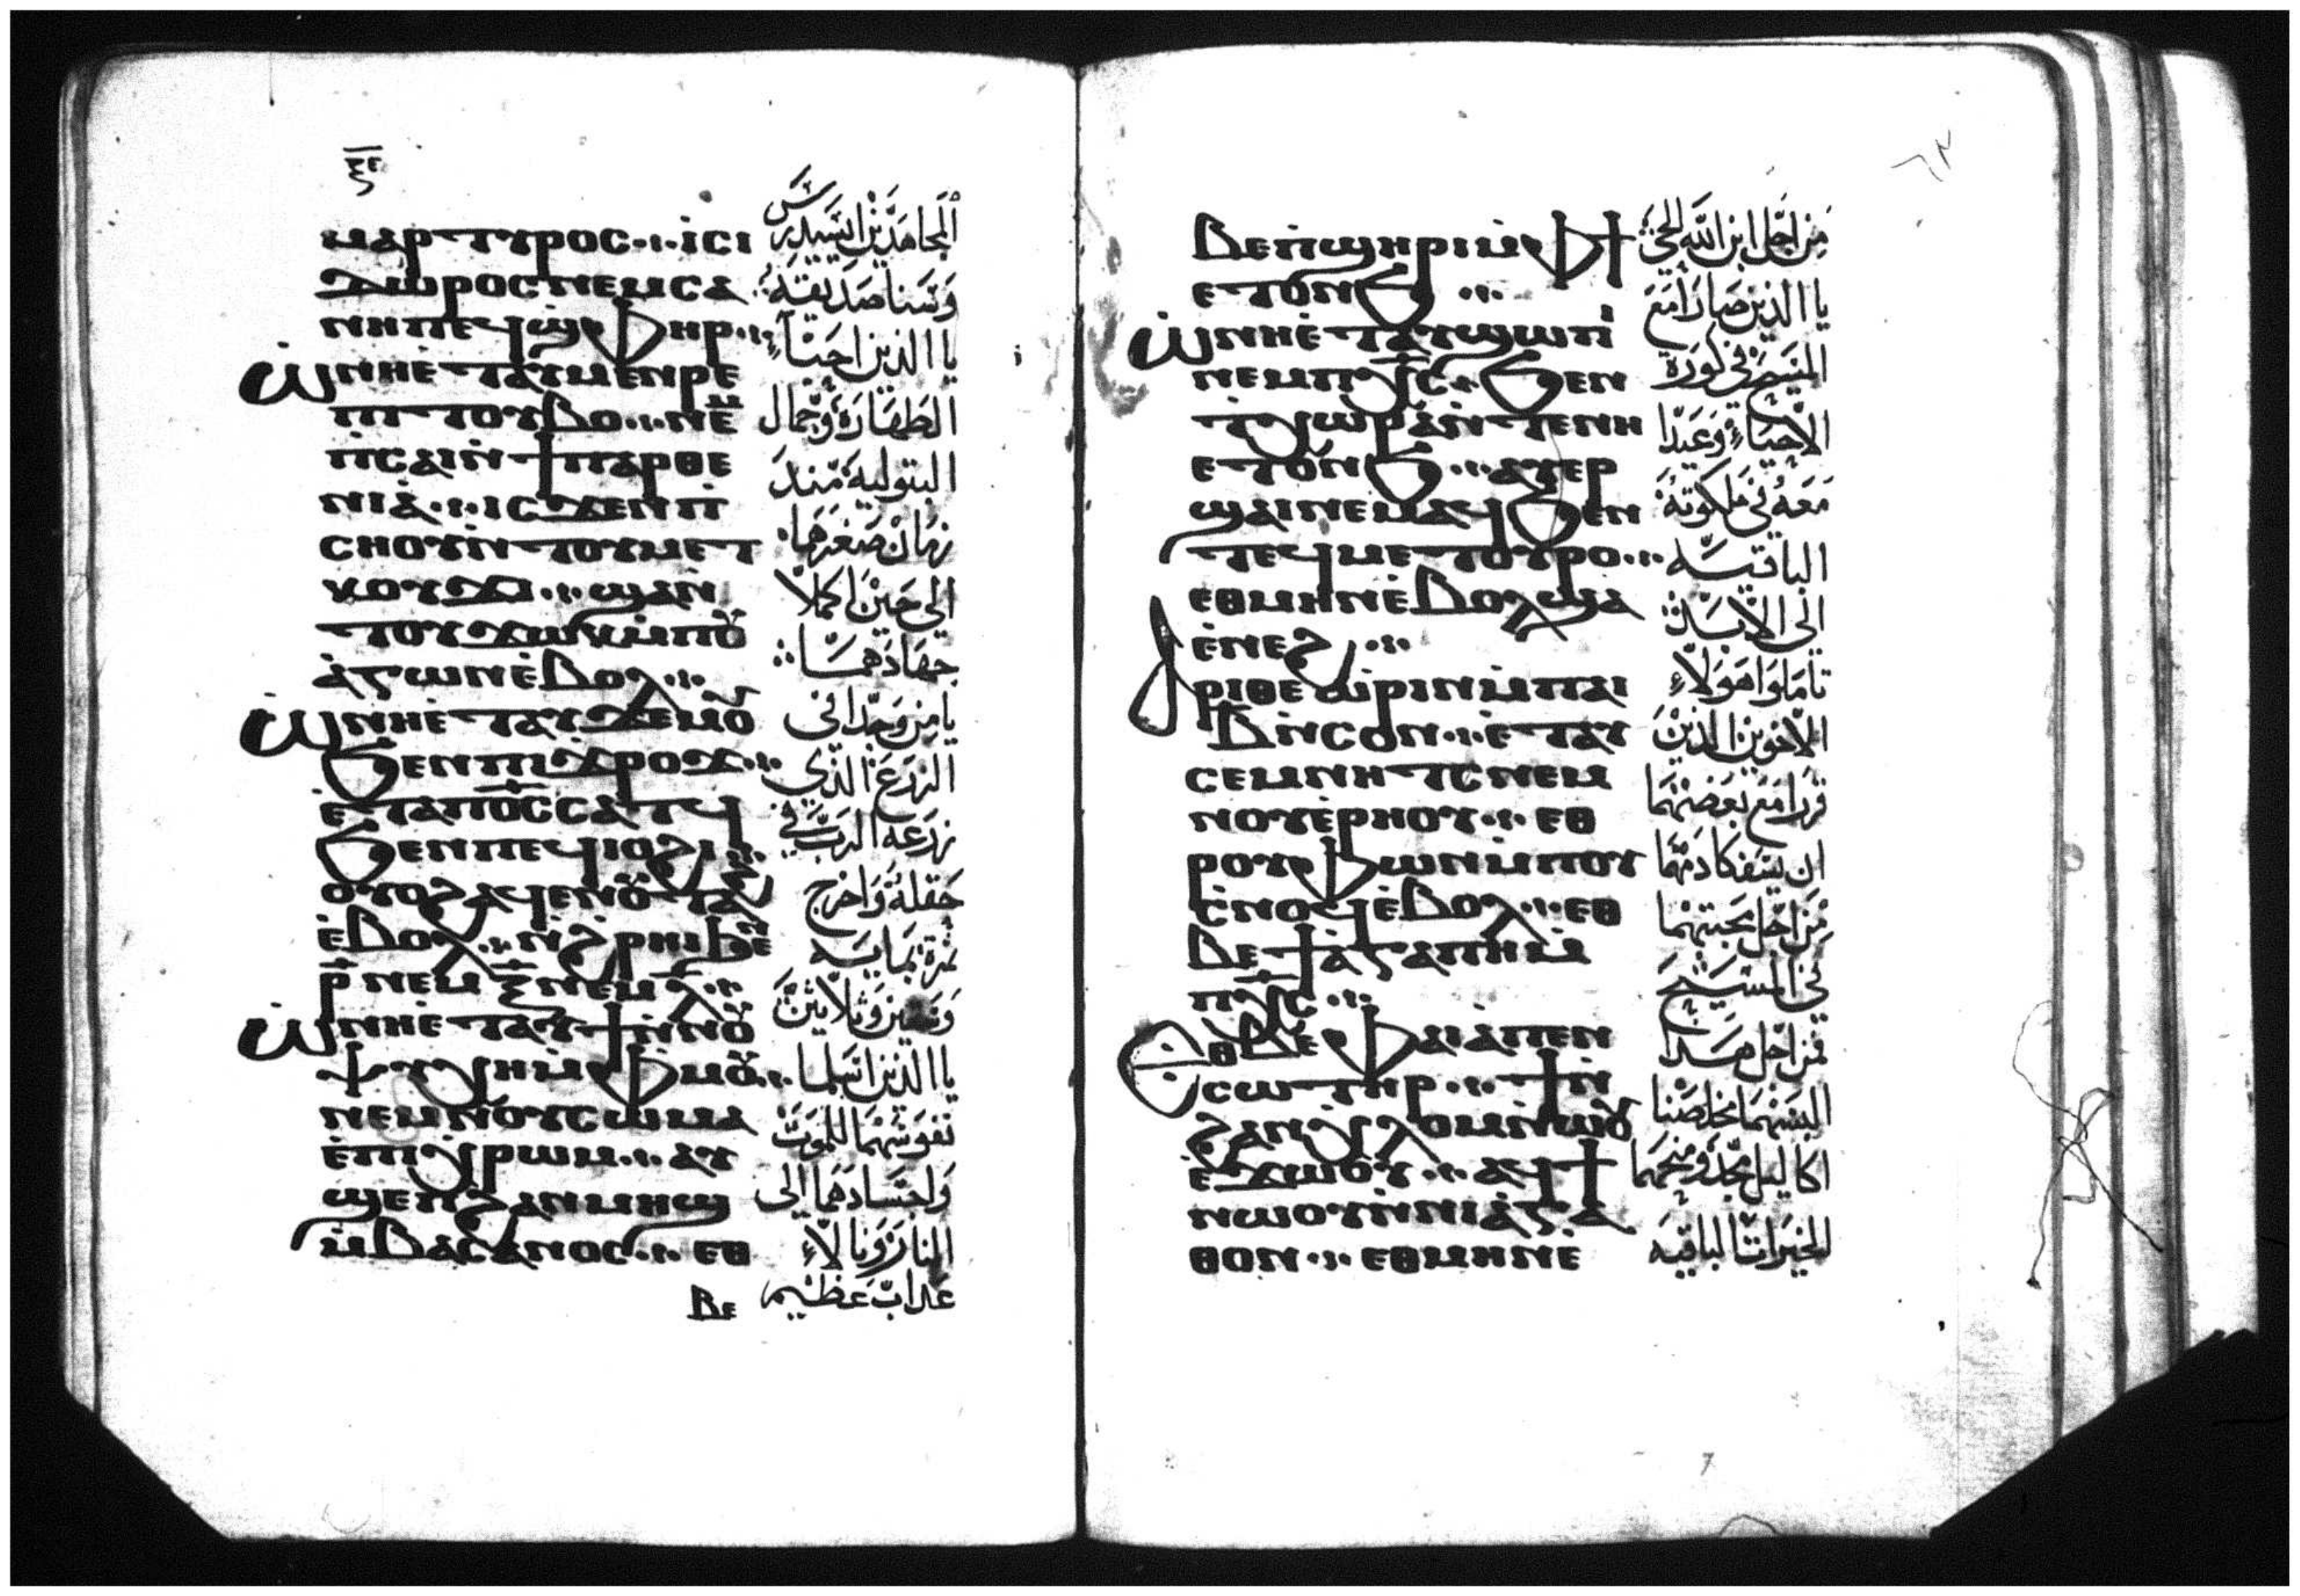 ⲝⲉ
ⲙⲁⲣⲧⲩⲣⲟⲥ ⲓⲥⲓ
ⲇⲱⲣⲟⲥ ⲛⲉⲙ ⲥⲁ
ⲛⲏ ⲡⲉϥϣⲫⲏⲣ
ⲱ̇ ⲛⲏⲉⲧⲁⲩⲙⲉⲛⲣⲉ
ⲡⲓⲧⲟⲩⲃⲟ ⲛⲉⲙ
ⲡⲥⲁⲓ ⲛ̇ϯⲡⲁⲣⲑⲉ
ⲛⲓⲁ ⲓⲥϫⲉⲛ ⲡ
ⲥⲏⲟⲩ ⲛ̇ⲧⲟⲩⲙⲉⲧ
ⲕⲟⲩϫⲓ ϣⲁⲛ
ⲧⲟⲩϫⲱⲕ ⲙ̇ⲡⲟⲩ
ⲁ̇ⲅⲱⲛ ⲉ̇ⲃⲟⲗ
ⲱ̇ ⲛⲏⲉⲧⲁⲩϫⲉⲙⲟⲩ
ϧⲉⲛ ⲡⲓϫⲣⲟϫ
ⲉ̇ⲧⲁ ⲡⲟ̅ⲥ̅ ⲥⲁⲧϥ
ϧⲉⲛ ⲡⲉϥⲓⲟϩⲓ
ⲟⲩⲟϩ ⲁϥⲉⲛ ⲟⲩⲧⲁϩ
ⲉ̇ⲃⲟⲗ ⲛ̇ϩⲣⲏⲓ ϧⲉⲛ
ⲣ̅ ⲛⲉⲙ ⲝ̅ ⲛⲉⲙ ⲗ̅
ⲱ̇ ⲛⲏⲉⲧⲁⲩϯ ⲛ̇ⲛⲟⲩ
ⲯⲩⲭⲏ ⲙ̇ⲫⲙⲟⲩ
ⲛⲉⲙ ⲛⲟⲩⲥⲱⲙⲁ
ⲉ̇ⲡⲓⲭⲣⲱⲙ ⲁⲩ
ϣⲉⲡ ϩⲁⲛⲙⲏϣ
ⲙ̇ⲃⲁⲥⲁⲛⲟⲥ ⲉⲑ
ⲃⲉ
المجاهدين ايسيدرس
وسنا صديقه
يا الذين احبآء
الطهارة وجمال
البتولية منذ
زمان صغرهما
الى حين اكملا
جهادهما
يا من وجدا في
الزرع الذي
زرعه الرب في
حقله واخرج
ثمرة بمايه
وستين وثلاثين
يا الذين اسلما
نفوسهما للموت
واجسادهما الى
النار ونالاء
عذاب عظيم
ⲃⲉ ⲡϣⲏⲣⲓ ⲙ̇ⲫϯ
ⲉⲧⲟⲛϧ
ⲱ̇ ⲛⲏⲉⲧⲁⲩϣⲱⲡⲓ
ⲛⲉⲙ ⲡⲭ̅ⲥ̅ ϧⲉⲛ
ⲧⲭⲱⲣⲁ ⲛ̇ⲧⲉ ⲛⲏ
ⲉⲧⲟⲛϧ ⲁⲩⲉⲣ
ϣⲁⲓ ⲛⲉⲙⲁϥ ϧⲉⲛ
ⲧⲉϥⲙⲉⲧⲟⲩⲣⲟ
ⲉⲑⲙⲏⲛ ⲉ̇ⲃⲟⲗ ϣⲁ
ⲉ̇ⲛⲉϩ
ⲁⲣⲓⲑⲉⲱⲣⲓⲛ ⲙ̇ⲡⲁⲓ
ⲃ̅ ⲛ̇ⲥⲟⲛ ⲉ̇ⲧⲁⲩ
ⲥⲉⲙⲛⲏⲧⲥ ⲛⲉⲙ
ⲛⲟⲩⲉ̇ⲣⲏⲟⲩ ⲉⲑ
ⲣⲟⲩⲫⲱⲛ ⲙ̇ⲡⲟⲩ
ⲥ̇ⲛⲟϥ ⲉ̇ⲃⲟⲗ ⲉⲑ
ⲃⲉ ϯⲁ̇ⲅⲁⲡⲏ ⲙ̇
ⲡⲭ̅ⲥ̅
ⲉⲑⲃⲉ ⲫⲁⲓ ⲁ̇ ⲡⲉⲛ
ⲥⲱⲧⲏⲣ ϯ ⲛ̇
ϩⲁⲛⲭⲗⲟⲙ ⲛ̇ⲱ̇ⲟⲩ
ⲉϫⲱⲟⲩ ⲁϥϯ
ⲛⲱⲟⲩ ⲛ̇ⲛⲓⲁ̇ⲅⲁ
ⲑⲟⲛ ⲉⲑⲙⲏⲛ ⲉ̇
من اجل ابن الله الحي
يا الذين صارا مع
المسيح في كورة
الاحيآء وعيدا
معه في ملكوته
الباقيه
الى الابد
تاملوا هولاء
الاخوين الذين
قررا مع بعضهما
ان يسفكا دمهما
من اجل محبتهما
في المسيح
فمن اجل هذا
البسهما مخلصنا
اكاليل مجد ومنحهما
الخيرات الباقيه